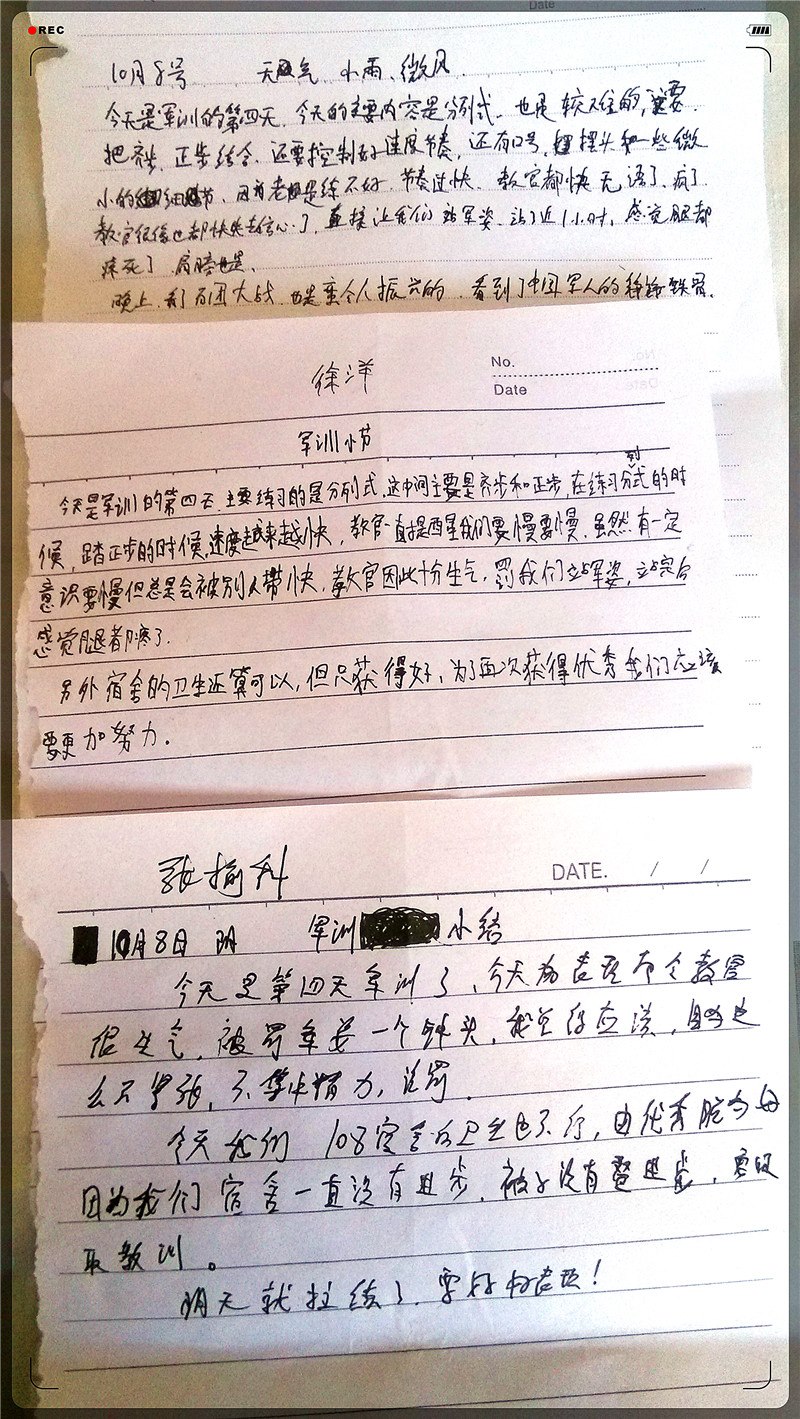 REC
Date
10月8号 天气 小雨、微风.
今天是军训的第四天. 今天的主要内容是分列式. 也是较难的, 需要
把齐步. 正步结合. 还要控制好速度节奏, 还有口号, 摆头和一些微
小的细节、因为老是练不好. 节奏过快. 教官都快无语了. 疯了
教官很后也都快失去信心了, 直接让我们站军姿. 站了近1小时. 感觉腿都
疼死了 肩膀也是.
晚上, 我们百团大战. 也是蛮令人振兴的. 看到了中国军人的铮铮铁骨.
徐洋
No.
Date
军训小节
今天是军训的第四天. 主要练习的是分列式, 这中间主要是齐步和正步, 在练习分列式的时
候, 踏正步的时候, 速度越来越快, 教官一直提醒我们要慢要慢. 虽然有一定
意识要慢但总是会被别人带快. 教官因此十分生气. 罚我们立军姿, 立完后
感觉腿都疼了.
另外宿舍的卫生还算可以, 但只获得好, 为了再次获得优秀我们应该
要更加努力.
张 科
DATE. / /
10月8日 阴 军训 小结
今天是第四天军训了, 今天的表现 令教官
很生气. 被罚军姿一个钟头, 我觉得应该, 自己
么不紧张, 不集中精力, 该罚.
今天我们 108宿舍的卫生也不行, 由优秀 为
因为我们宿舍一直没有进步. 被子没有 进步. 要吸
取教训。
明天就拉练了, 要好好表现!